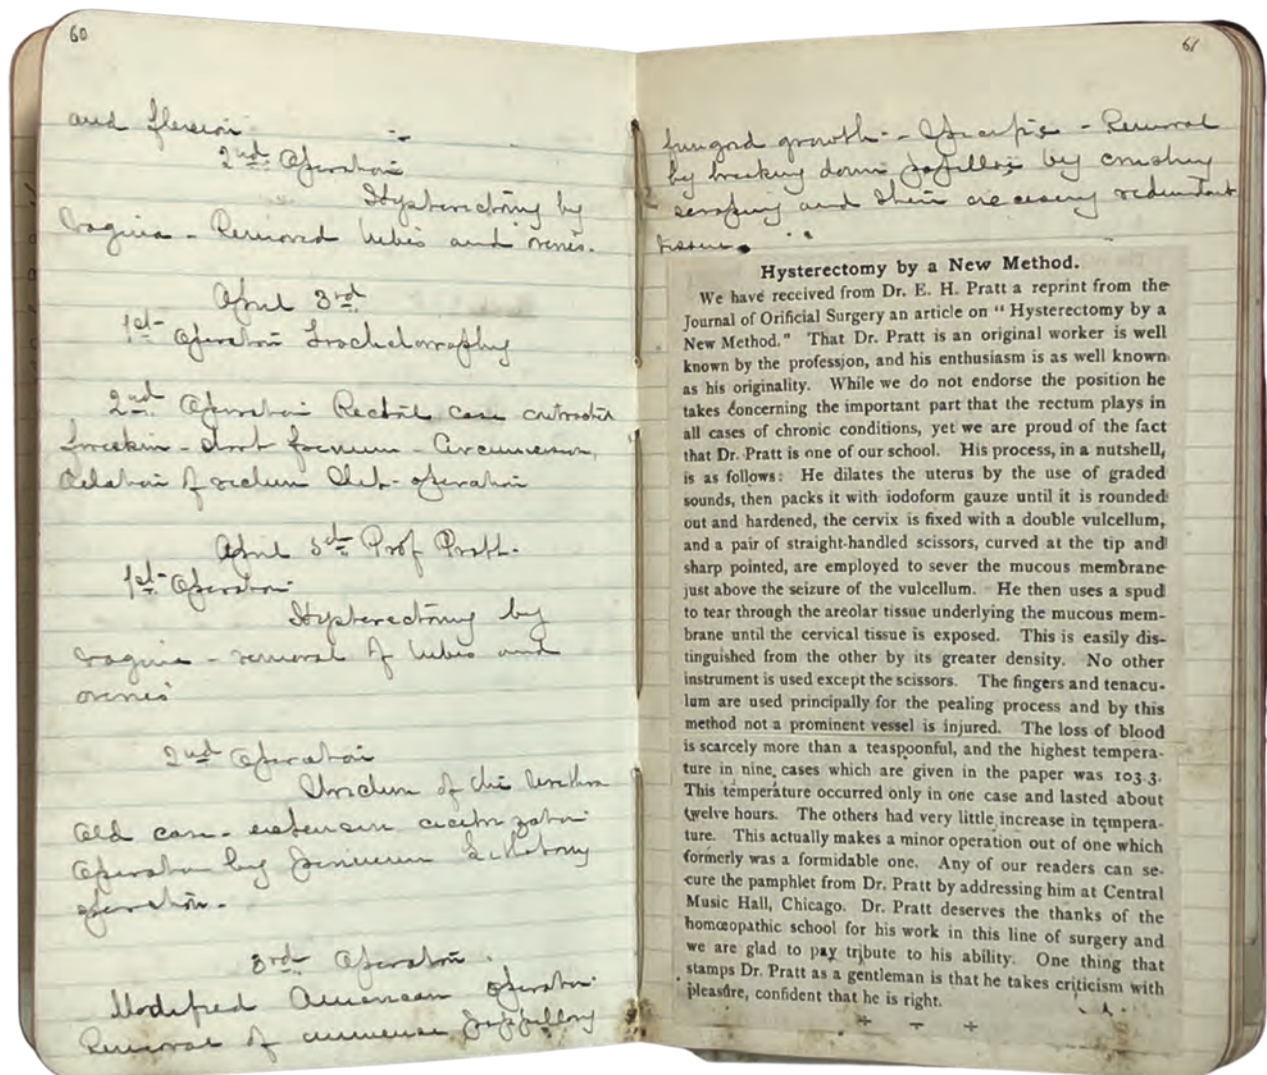 60
and flexion
2nd Operation
Hysterectomy by
vagina - Removed tubes and ovaries.
April 3rd
1st Operation Trachelorrhaphy
2nd Operation Rectal case contracted
foreskin - short frenum - Circumcision,
dilatation of rectum Slit- operation
April 5th Prof Pratt.
1st Operation
Hysterectomy by
vagina - removal of tubes and
ovaries
2nd Operation
Stricture of the Urethra
Old case - extensive cicatrization
Operation by perineum
operation.
3rd Operation.
Modified American operation
Removal of immense papillary
61
fungoid growth - - Removal
by breaking down papillae by crushing
scraping and then excising redundant
tissue.
Hysterectomy by a New Method.
We have received from Dr. E. H. Pratt a reprint from the
Journal of Orificial Surgery an article on "Hysterectomy by a
New Method." That Dr. Pratt is an original worker is well
known by the profession, and his enthusiasm is as well known
as his originality. While we do not endorse the position he
takes concerning the important part that the rectum plays in
all cases of chronic conditions, yet we are proud of the fact
that Dr. Pratt is one of our school. His process, in a nutshell,
is as follows: He dilates the uterus by the use of graded
sounds, then packs it with iodoform gauze until it is rounded
out and hardened, the cervix is fixed with a double vulcellum,
and a pair of straight-handled scissors, curved at the tip and
sharp pointed, are employed to sever the mucous membrane
just above the seizure of the vulcellum. He then uses a spud
to tear through the areolar tissue underlying the mucous mem-
brane until the cervical tissue is exposed. This is easily dis-
tinguished from the other by its greater density. No other
instrument is used except the scissors. The fingers and tenacu-
lum are used principally for the pealing process and by this
method not a prominent vessel is injured. The loss of blood
is scarcely more than a teaspoonful, and the highest tempera-
ture in nine cases which are given in the paper was 103.3.
This temperature occurred only in one case and lasted about
twelve hours. The others had very little increase in tempera-
ture. This actually makes a minor operation out of one which
formerly was a formidable one. Any of our readers can se-
cure the pamphlet from Dr. Pratt by addressing him at Central
Music Hall, Chicago. Dr. Pratt deserves the thanks of the
homœopathic school for his work in this line of surgery and
we are glad to pay tribute to his ability. One thing that
stamps Dr. Pratt as a gentleman is that he takes criticism with
pleasure, confident that he is right.